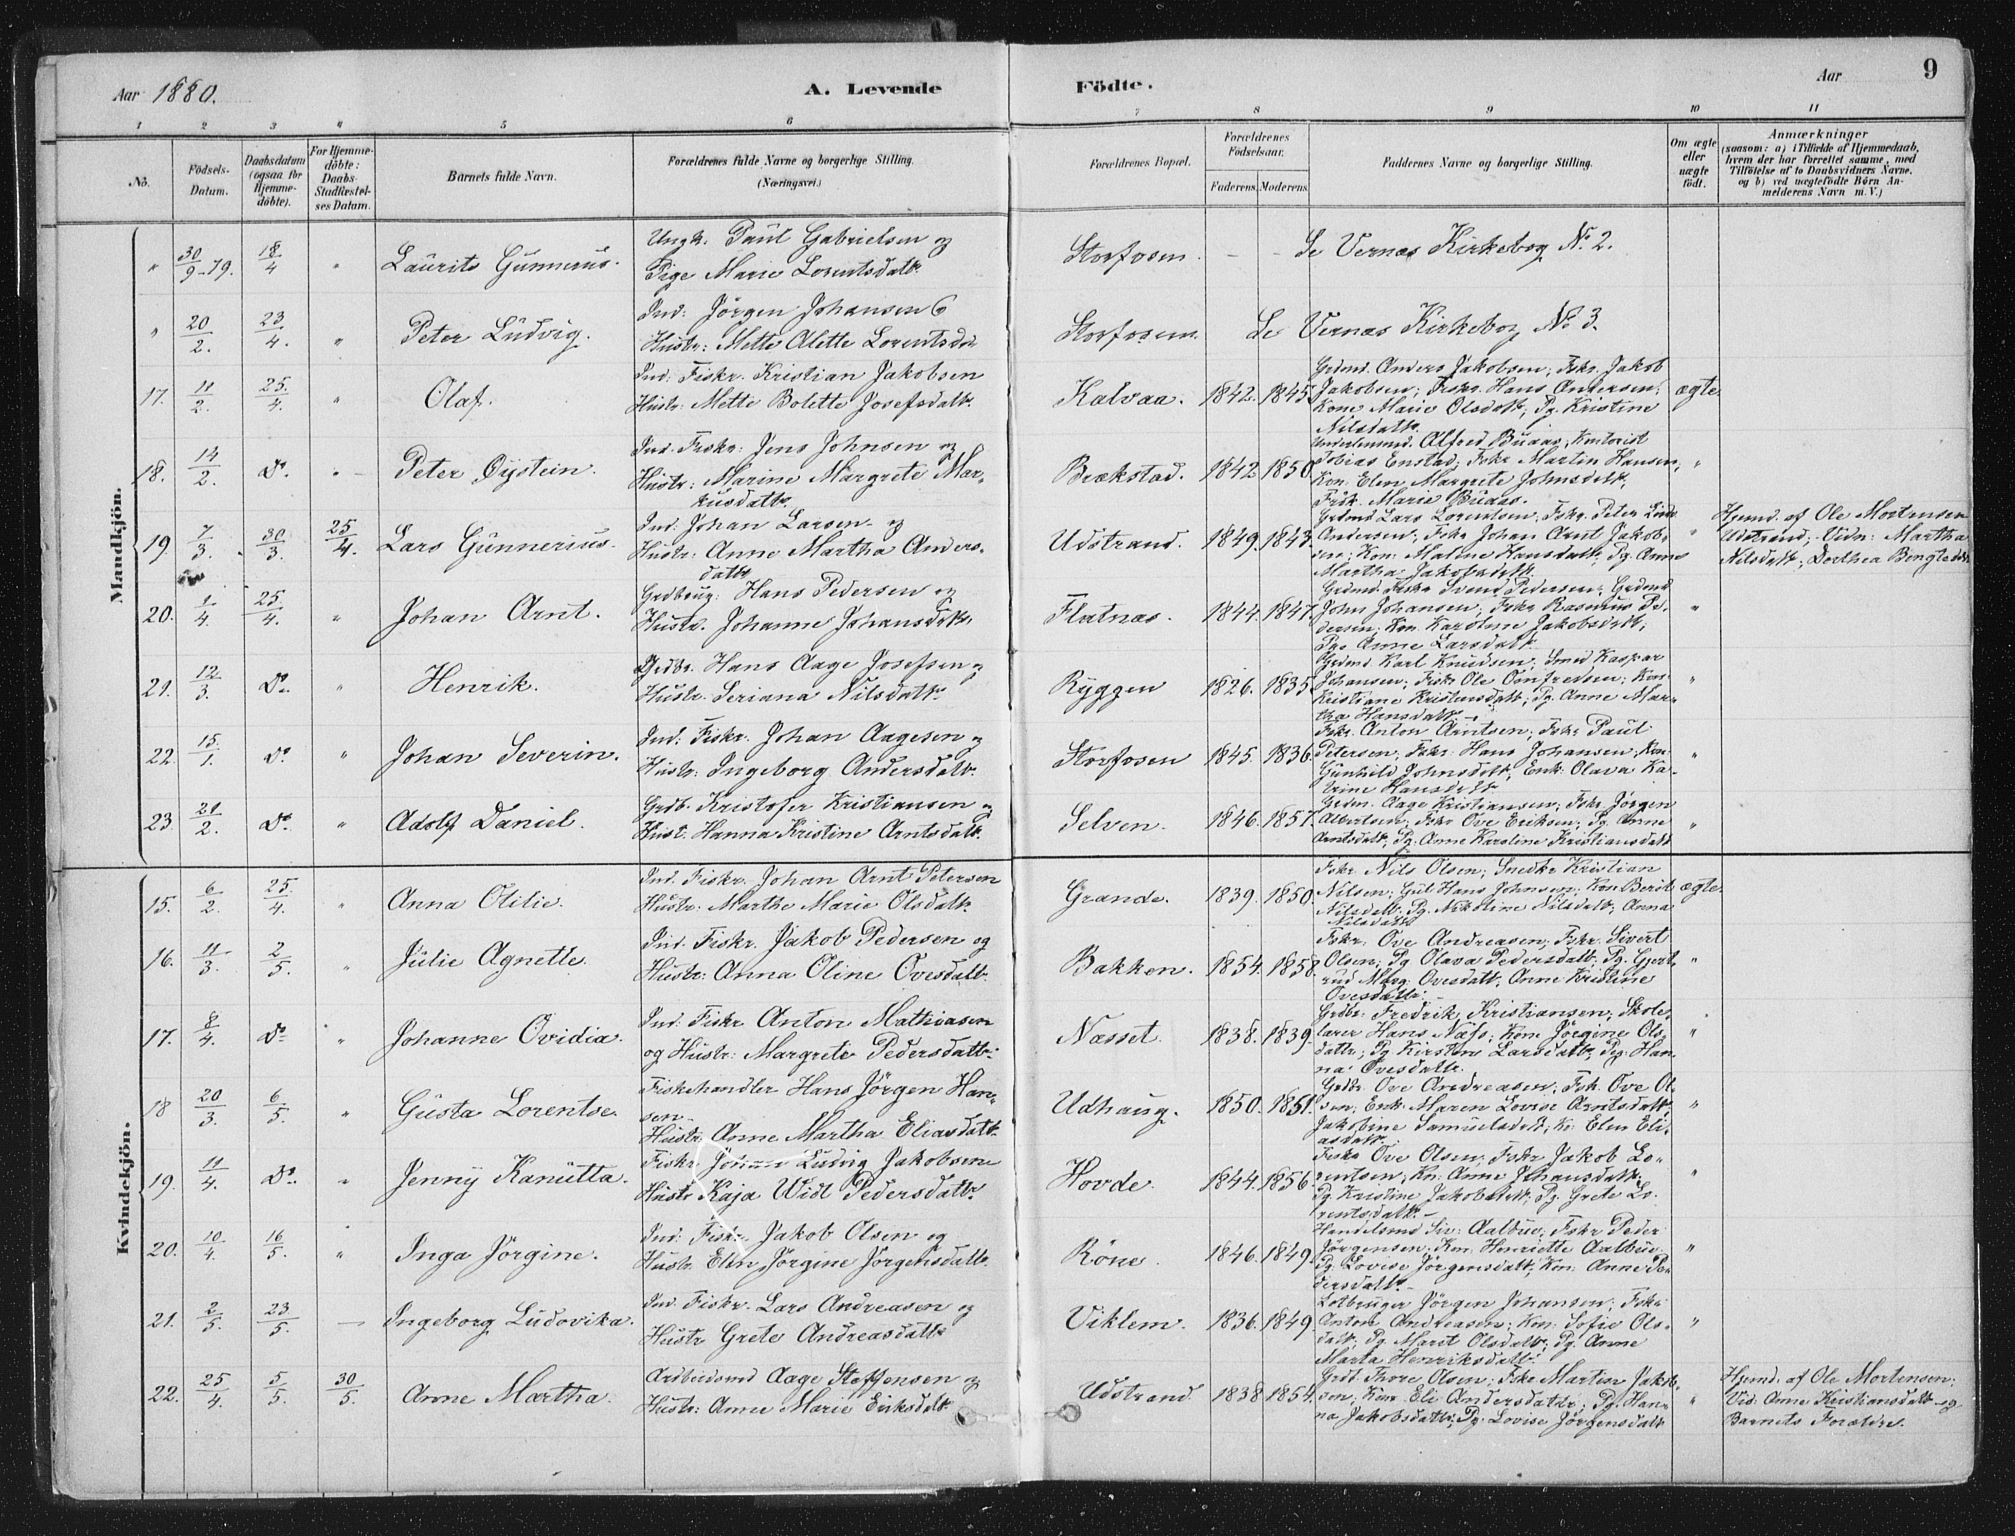 Aar 1880.
A. Levende
Födte.
Aar
9
1 2 3 4 5 6 7 8 9 10 11
No.
Födsels-Datum.
Daabsdatum (ogsaa for Hjemme-döbte).
For Hjemme-döbte: Daabs-Stadfæstel-ses Datum.
Barnets fulde Navn.
Forældrenes fulde Navne og borgerlige Stilling. (Næringsvei.)
Forældrenes Bopæl.
Forældrenes Födselsaar.
Faderens. Moderens.
Faddernes Navne og borgerlige Stilling.
Om ægte eller uægte födt.
Anmærkninger
(saasom: a) i Tilfælde af Hjemmedaab, hvem der har forrettet samme, med Tilföielse af to Daabsvidners Navne, og b) ved uægtefödte Börn An-melderens Navn m. V.)
Mandkjön.
" 30/9-79. 18/4 " Laurits Gunnerus. Ungk. Paul Gabrielsen og
Pige Marie Lorentsdatr. Storfosen - - Se Vernæs Kirkebog No 2.
" 20/2. 23/4. " Peter Ludvig. Ind: Jörgen Johansen &
Hustr: Mette Alette Lorentsdr Storfosen. Se Vernæs Kirkebog No 3.
17. 11/2. 25/4. " Olaf. Ind: Fiskr. Kristian Jakobsen
Hustr: Mette Bolette Josefsdatr. Kalvaa. 1842. 1845. Grdmd. Anders Jakobsen; Fskr. Jakob
Jakobsen; Fskr. Hans Andersen; ægte.
Kone Marie Olsdatr, Pg. Kristine
Nilsdatr.
18. 14/2. Do. - Peter Öystein. Ind. Fiskr: Jens Johnsen og
Hustr: Marine Margrete Mar-
kusdatr. Brækstad. 1842 1850. Alfred Buaas; Kontorist
Tobias Enstad; Fskr Martin Hansen; "
Kon. Elen Margrete Johnsdatr,
Frök. Marie Buaas.
19 7/3. 30/3. 25/4. Lars Gunnerius. Ind. Johan Larsen og
Hustr: Anne Martha Anders-
datr Udstrand. 1849. 1843. Grdmd Lars Lorentsen; Fskr. Peter
Andersen; Fskr Johan Arnt Jakob-
sen; Kon: Maline Hansdatr, Pg. Anne
Martha Jakobsdatr. " Hjemd. af Ole Mortensen
Udstrand; Vidn: Martha
Nilsdatr; Dorthea Bengtsdr.
20. 1/4. 25/4. " Johan Arnt. Grdbrug: Hans Pedersen og
Hustr. Johanne Johansdatr. Flatnæs. 1844. 1847. Grdmd. Fiskr Svend Pedersen; Grdmd
John Johansen; Fskr Rasmus Pe-
dersen; Kon. Karoline Jakobsdatr,
Pge Anne Larsdatr. "
21. 12/3. Do. " Henrik. Grdbr. Hans Aage Josefsen og
Hustr. Seriana Nilsdatr. Ryggen 1826. 1835. Grdmd Karl Knudsen; Smed Kaspar
Johansen; Fiskr Ole Onfredsen; Kon
Kristiane Kristensdatr; Pg. Anne Mar-
tha Hansdatr. "
22. 15/1. Do " Johan Severin. Ind: Fiskr. Johan Aagesen og
Hustr: Ingeborg Andersdatr. Storfosen 1845. 1836. Fskr. Anton Arntsen; Fskr Paul
Petersen; Fskr: Hans Johansen; Kon
Gunhild Johnsdatr, Enk: Olava Ka-
trine Hansdatr "
23. 21/2. Do. " Adolf Daniel. Grdb. Kristofer Kristiansen og
Hust. Hanna Kristine Arntsdatr. Selven. 1846. 1857. Grdm. Aage Kristiansen; Fskr Jörgen
Albertsen; Fskr Ove Eriksen; Pg. Anne
Arntsdatr, Pg. Anne Karoline Kristiansdatr "
Kvindekjön.
15. 6/2. 25/4. " Anna Otilie. Ind. Fiskr. Johan Arnt Petersen
Hustr: Marthe Marie Olsdatr. Grande. 1839. 1850. Fskr. Nils Olsen; Snedkr Kristian
Nilsen; Gul. Hans Johnsen; Kon. Berit ægte.
Nilsdatr; Pg. Nikoline Nilsdatr, Anna
Nilsdatr
16. 11/3. 2/5. " Julie Agnette. Ind. Fiskr. Jakob Pedersen og
Hustr: Anna Oline Ovesdatr. Bakken. 1854. 1858. Fskr: Ove Andreasen; Fskr. Sivert
Olsen; Pg Olava Pedersdatr, Pg. Gjert-
rud Marg. Ovesdatr, Anne Kristine
Ovesdatr. "
17. 8/4. Do " Johanne Ovidia. Ind: Fiskr Anton Mathiasen
og Hustr: Margrete Pedersdatr. Næsset. 1838. 1839. Grdbr: Fredrik Kristiansen; Skole-
lærer Hans Næss; Kone Jörgine Ols-
datr; Pg Kirsten Larsdatr, Pig. Han-
na Ovesdatr. "
18 20/3. 6/5. " Gusta Lorentse. Fiskehandler Hans Jörgen Han-
sen
Hustr: Anne Martha Eliasdatr. Udhaug. 1850. 1851. Grdbr Ove Andreasen; Fsk. Ove Ol-
sen; Enk: Maren Lovise Arntsdatr,
Jakobine Samuelsdatr; Kn. Elen Eli-
asdatr. "
19. 11/4. Do. " Jenny Kanutta. Fiskr. Johan Ludvig Jakobsen
Hustr Kaja Wist Pedersdatr. Hovde. 1844. 1856. Fiskr Ove Olsen; Fskr Jakob Lo-
rentsen; Kn. Anne Johansdatr;
Pg. Kristine Jakobsdatr; Pg. Grete Lo-
rentsdatr. "
20. 10/4. 16/5. " Inga Jörgine. Ind: Fiskr. Jakob Olsen og
Hustr. Elen Jörgine Jörgensdatr. Röne. 1846. 1849. Handelsmd Siv: Aalbue; Fskr Peder
Jörgensen; Kon. Henriette Aalbue
Pg. Lovise Jörgensdatr, Kon: Anne Pe-
dersdatr. "
21. 2/5. 23/5. - Ingeborg Ludovika. Ind. Fiskr. Lars Andreasen og
Hustr Grete Andreasdatr. Viklem. 1836. 1849. Lotbruger Jörgen Johansen; Fskr
Anton Andreasen; Kon: Sofie Ols-
datr, Pg. Maret Olsdatr; Pg. Anne
Marta Henriksdatr. "
22. 25/4. 5/5. 30/5. Anne Martha. Arbeidsmd Aage Steffensen og
Hustr: Anne Marie Eriksdatr. Udstrand 1838 1854. Grdb. Thore Olsen; Fskr Martin Jakob-
sen; Kone Eli Andersdatr; Pg. Han-
na Jakobsdatr, Pg. Lovise Jörgensdatr " Hjemd. af Ole Mortensen;
Vid. Anne Kristiansdatr og
Barnets Forældre.